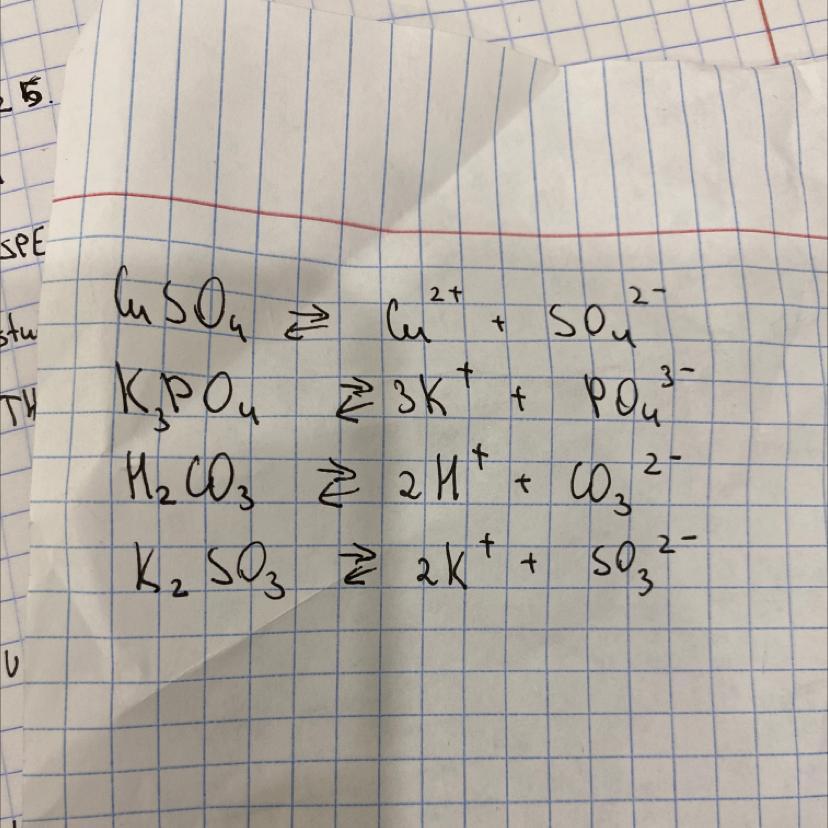 25.
SPE
stu
TH
U
CuSO₄ ⇄ Cu²⁺ + SO₄²⁻
K₃PO₄ ⇄ 3K⁺ + PO₄³⁻
H₂CO₃ ⇄ 2H⁺ + CO₃²⁻
K₂SO₃ ⇄ 2K⁺ + SO₃²⁻